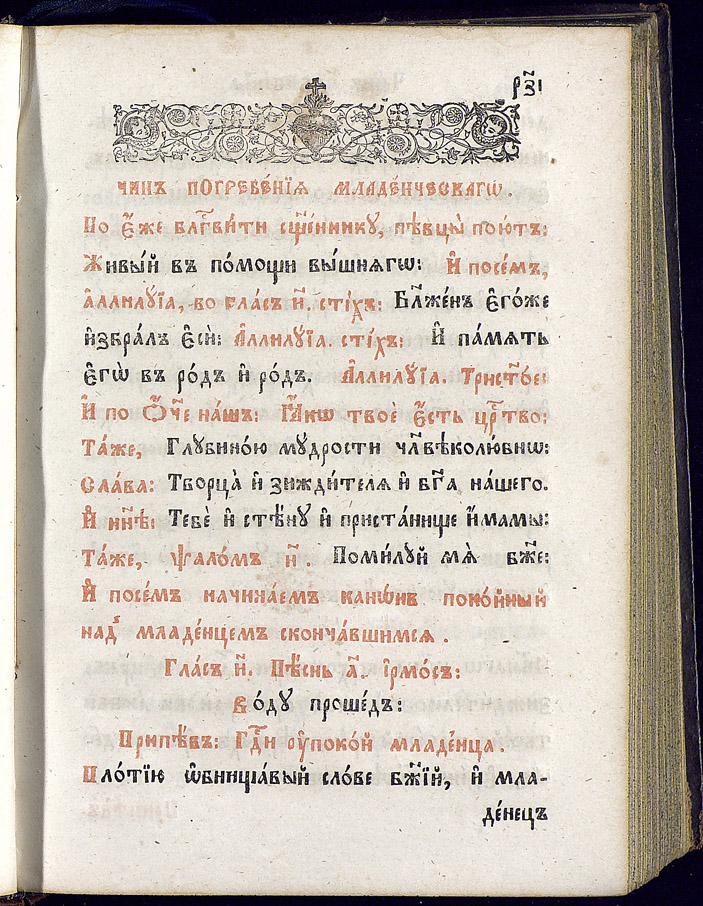 р҃ѯі
чинъ погребе́нїѧ младе́нческагѡ.
По є҆́же блг҃ви́ти сщ҃е́ннику, пѣвцы̀ пою́тъ:
Живы́й въ по́мощи вы́шнягѡ: И҆ посе́мъ,
а҆ллилꙋ́їа, во гла́съ и҃. сті́хъ: Бл҃же́нъ є҆го́же
и҆збра́лъ є҆сѝ: А҆ллилꙋ́їа. сті́хъ: И҆ па́мять
є҆гѡ̀ въ ро́дъ и҆ ро́дъ. А҆ллилꙋ́їа. Трист҃о́е:
И҆ по Ѻ҆́ч҃е на́шъ: Ꙗ҆́кѡ твоѐ є҆́сть цр҃тво:
Та́же, Глꙋбино́ю мꙋ́дрости чл҃вѣколю́бнѡ:
Сла́ва: Творца̀ и҆ зижди́телѧ и҆ бг҃а на́шего.
И҆ ны́нѣ: Тебѐ и҆ стѣ́нꙋ и҆ приста́нище и҆́мамы:
Та́же, ѱало́мъ н҃. Поми́лꙋй мѧ̀ бж҃е:
И҆ посе́мъ начина́емъ канѡ́нъ поко́йный
над̾ младе́нцемъ сконча́вшимсѧ.
Гла́съ и҃. Пѣ́снь а҃. і҆рмо́съ:
Во́дꙋ проше́дъ:
Припѣ́въ: Гдⷭ҇и ᲂу҆поко́й младе́нца.
Пло́тїю ѡ҆бнища́вый сло́ве бж҃їй, и҆ мла-
де́нецъ